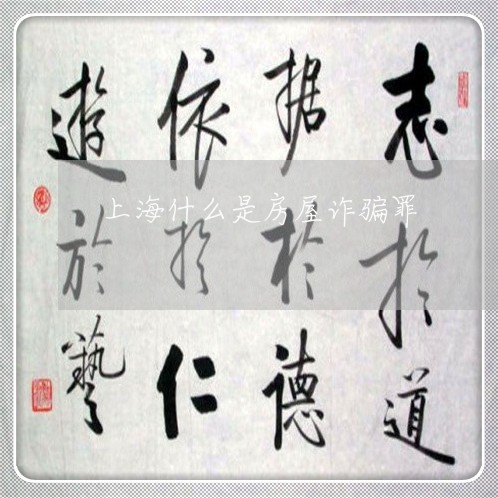 志於道
据於德
依於仁
遊於藝
上海什么是房屋诈骗罪